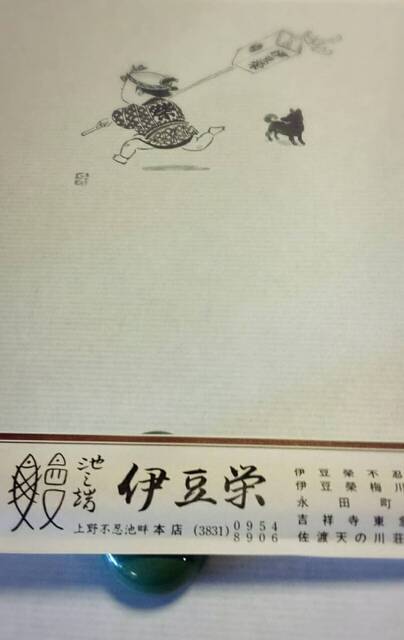 栄
池之端
伊豆栄
上野不忍池畔 本店 (3831) 0954
8906
伊豆榮不忍
伊豆榮梅川
永田町
吉祥寺東急
佐渡天の川荘